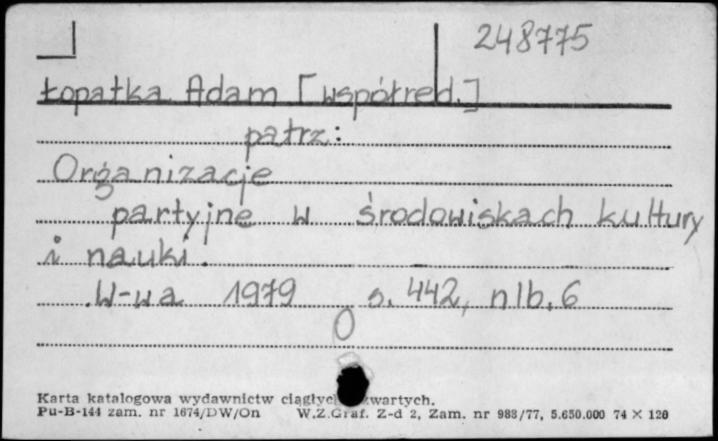 248775
Łopatka Adam [współred.]
patrz:
Organizacje
partyjne w środowiskach kultury
i nauki.
W-wa 1979 s. 442, nlb. 6
Karta katalogowa wydawnictw ciągłych zwartych.
Pu-B-144 zam. nr 1674/DW/On W.Z.Graf. Z-d 2, Zam. nr 988/77, 5.650.000 74 × 120